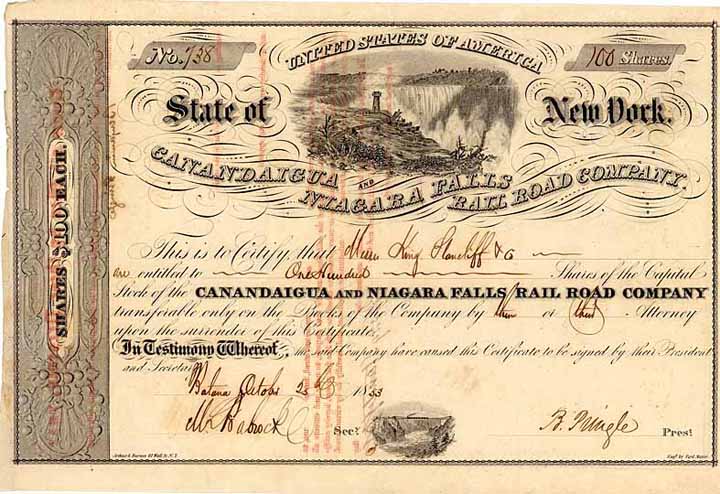 No. 738
UNITED STATES OF AMERICA
100 Shares.
State of New York.
CANANDAIGUA AND NIAGARA FALLS RAIL ROAD COMPANY.
SHARES $100 EACH.
This is to Certify, that King & Co
are entitled to One Hundred Shares of the Capital
Stock of the CANANDAIGUA AND NIAGARA FALLS RAIL ROAD COMPANY
transferable only on the Books of the Company by them or their Attorney
upon the surrender of this Certificate.
In Testimony Whereof, the said Company have caused this Certificate to be signed by their President
and Secretary
1853
Secy.
B. Pringle Prest.